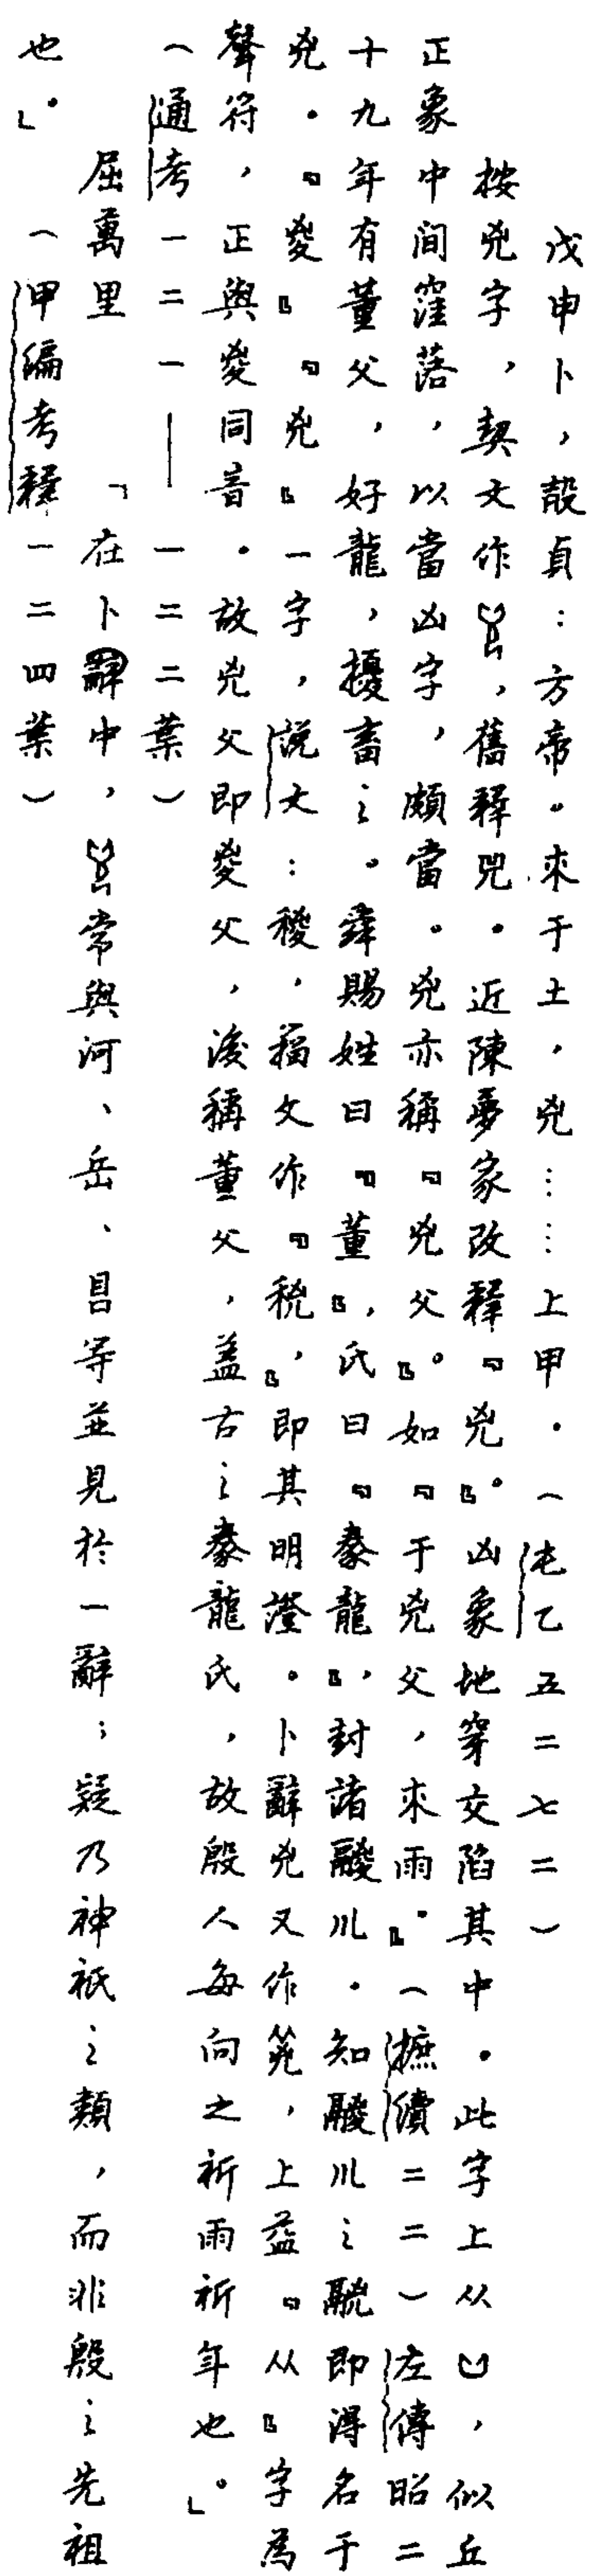 戊申卜，㱿貞：方帝。來于土，兇……上甲．（屯乙五二七二）
按兇字，契文作，舊釋兕．近陳夢家改釋『兇』。凶象地穿交陷其中．此字上从凵，似丘
正象中间窪落，以當凶字，頗當。兇亦稱『兇父』。如『于兇父，來雨』．（摭續二二）左傳昭二
十九年有董父，好龍，擾畜之。舜賜姓曰『董』，氏曰『豢龍』，封諸鬷川．知鬷川之鬷即得名于
兇．『㚇』『兇』一字，説文：稯，籀文作『稅』，即其明證。卜辭兇又作，上益『从』字為
聲符，正與㚇同音．故兇父即㚇父，後稱董父，蓋古之豢龍氏，故殷人每向之祈雨祈年也。」
（通考一二一——一二二葉）
屈萬里「在卜辭中，常與河、岳、等並見於一辭；疑乃神祇之類，而非殷之先祖
也。」（甲編考釋一二四葉）